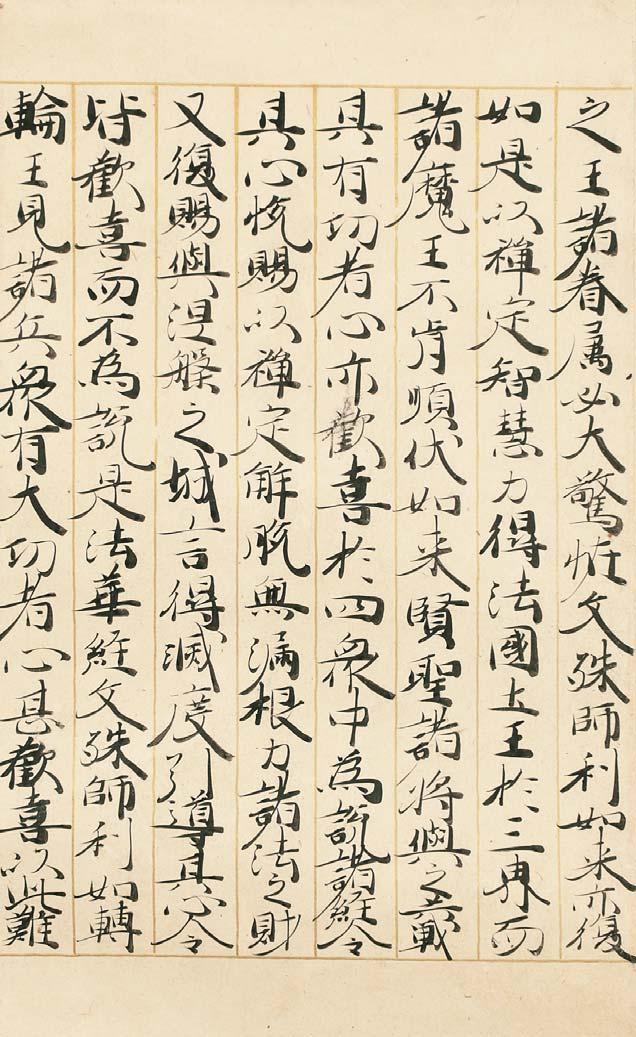 之王諸眷属必大驚恠文殊師利如来亦復
如是以禪定智慧力得法國土王於三界而
諸魔王不肯順伏如来賢聖諸将與之共戰
其有功者心亦歡喜於四衆中為說諸經令
其心悅賜以禪定解脫無漏根力諸法之財
又復賜與涅槃之城言得滅度引導其心令
皆歡喜而不為說是法華經文殊師利如轉
輪王見諸兵衆有大功者心甚歡喜以此難